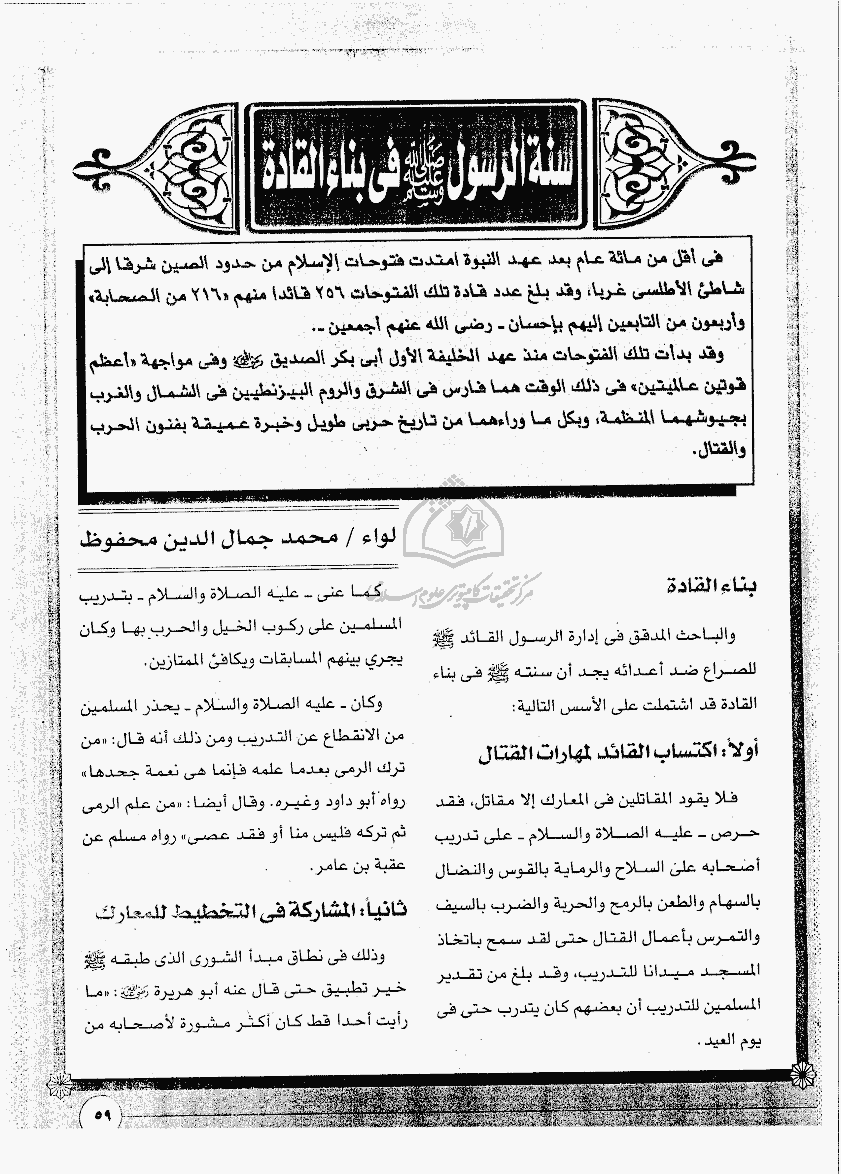 سنة الرسول ﷺ فى بناء القادة
فى أقل من مائة عام بعد عهد النبوة امتدت فتوحات الإسلام من حدود الصين شرقا إلى
شاطئ الأطلسى غربا، وقد بلغ عدد قادة تلك الفتوحات ٢٥٦ قائدا منهم «٢١٦ من الصحابة»
وأربعون من التابعين إليهم بإحسان ـ رضى الله عنهم أجمعين ـ.
وقد بدأت تلك الفتوحات منذ عهد الخليفة الأول أبى بكر الصديق رضي الله عنه وفى مواجهة «أعظم
قوتين عالميتين» فى ذلك الوقت هما فارس فى الشرق والروم البيزنطيين فى الشمال والغرب
بجيوشهما المنظمة، وبكل ما وراءهما من تاريخ حربى طويل وخبرة عميقة بفنون الحرب
والقتال.
لواء / محمد جمال الدين محفوظ
بناء القادة
والباحث المدقق فى إدارة الرسول القائد ﷺ
للصراع ضد أعدائه يجد أن سنته ﷺ فى بناء
القادة قد اشتملت على الأسس التالية:
أولاً: اكتساب القائد لمهارات القتال
فلا يقود المقاتلين فى المعارك إلا مقاتل، فقد
حرص ـ عليه الصلاة والسلام ـ على تدريب
أصحابه على السلاح والرماية بالقوس والنضال
بالسهام والطعن بالرمح والحربة والضرب بالسيف
والتمرس بأعمال القتال حتى لقد سمح باتخاذ
المسجد ميدانا للتدريب، وقد بلغ من تقدير
المسلمين للتدريب أن بعضهم كان يتدرب حتى فى
يوم العيد.
كما عنى ـ عليه الصلاة والسلام ـ بتدريب
المسلمين على ركوب الخيل والحرب بها وكان
يجري بينهم المسابقات ويكافئ الممتازين.
وكان ـ عليه الصلاة والسلام ـ يحذر المسلمين
من الانقطاع عن التدريب ومن ذلك أنه قال: «من
ترك الرمى بعدما علمه فإنما هى نعمة جحدها»
رواه أبو داود وغيره. وقال أيضا: «من علم الرمى
ثم تركه فليس منا أو فقد عصى» رواه مسلم عن
عقبة بن عامر.
ثانياً: المشاركة فى التخطيط للمعارك
وذلك فى نطاق مبدأ الشورى الذى طبقه ﷺ
خير تطبيق حتى قال عنه أبو هريرة رضي الله عنه: «ما
رأيت أحدا قط كان أكثر مشورة لأصحابه من
٥٩
مركز تحقیقات کامپیوتری علوم اسلامی